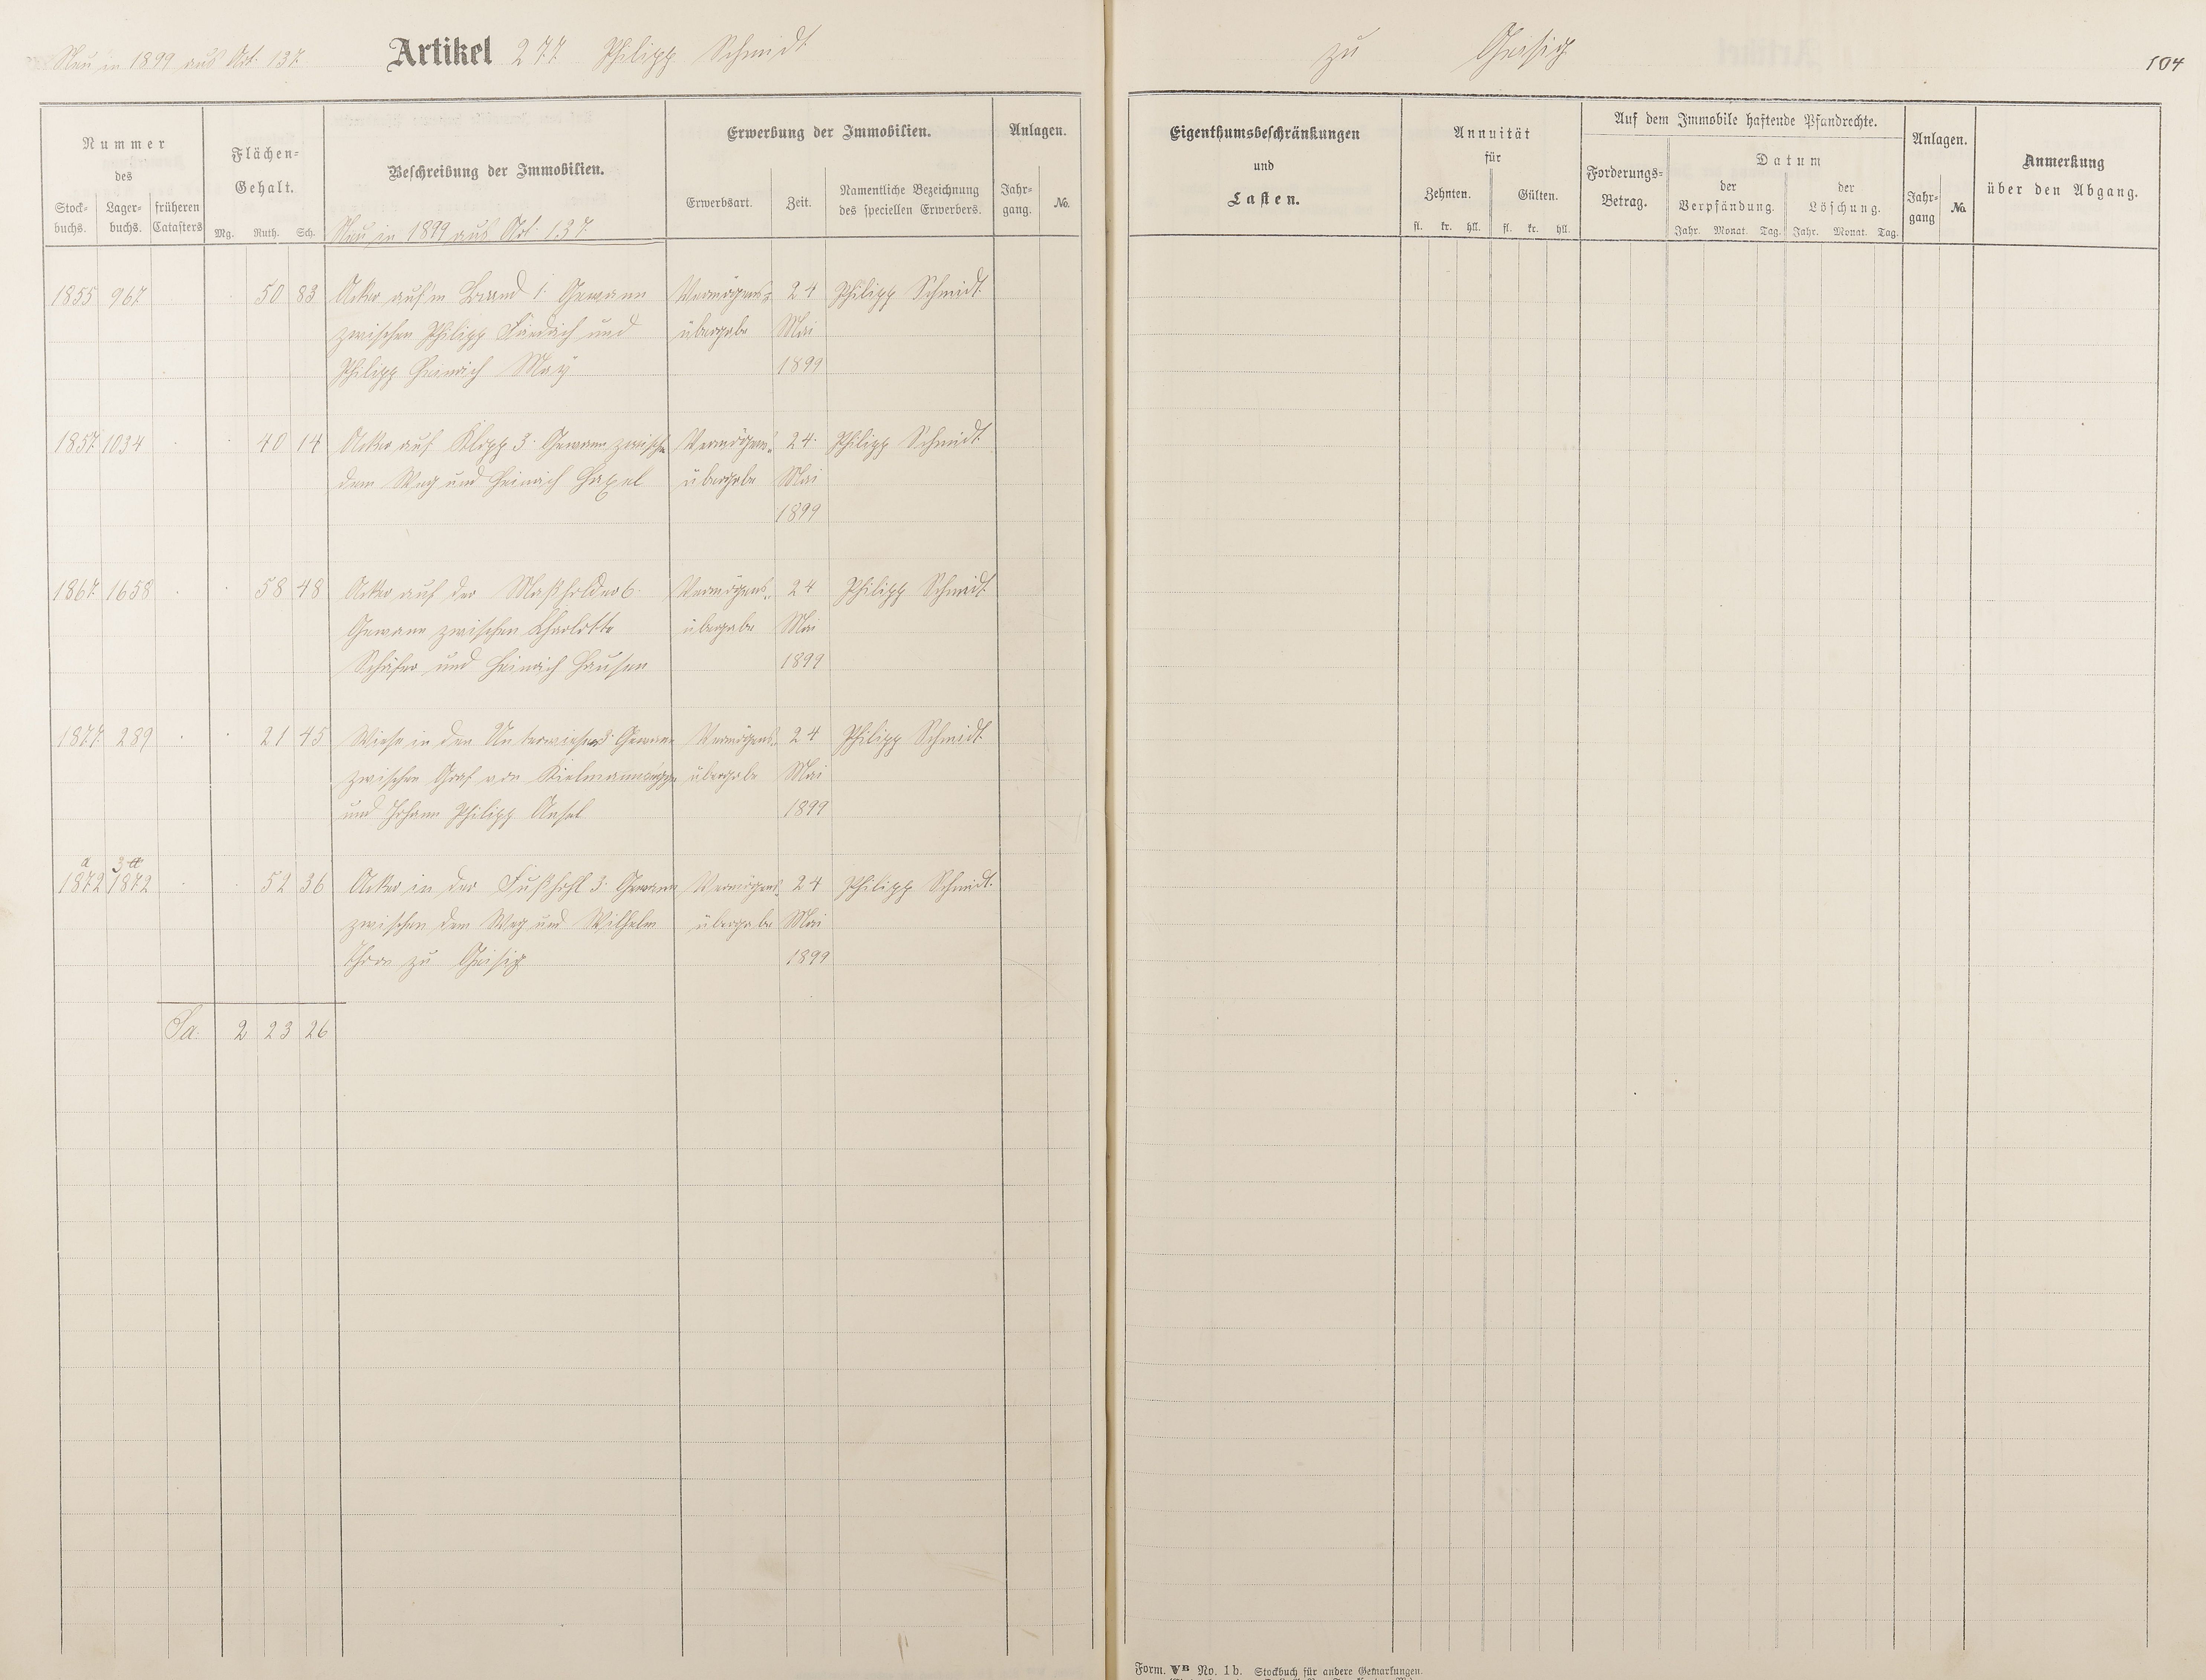 Neu in 1899 aus Art. 137.
Artikel 277 Philipp Schmidt
zu Geisig
104
Nummer
des
Stock-
buchs.
Lager-
buchs.
früheren
Catasters
Flächen-
Gehalt.
Mg. Ruth. Sch.
Beschreibung der Immobilien.
Neu in 1899 aus Art. 137.
Erwerbung der Immobilien.
Erwerbsart.
Zeit.
Namentliche Bezeichnung
des speciellen Erwerbers.
Anlagen.
Jahr-
gang.
No.
Eigenthumsbeschränkungen
und
Lasten.
Annuität
für
Zehnten.
fl. kr. hll.
Gülten.
fl. kr. hll.
Auf dem Immobile haftende Pfandrechte.
Forderungs-
Betrag.
Datum
der
Verpfändung.
Jahr. Monat. Tag.
der
Löschung.
Jahr. Monat. Tag.
Anlagen.
Jahr-
gang
No.
Anmerkung
über den Abgang.
1855 967 50 83 Acker auf'm Brand 1. Gewann Vermögens- 24 Philipp Schmidt.
zwischen Philipp Friedrich und übergabe Mai
Philipp Heinrich May 1899
1857 1034 40 14 Acker auf Klopp 3. Gewann zwischen Vermögens- 24. Philipp Schmidt.
dem Weg und Heinrich übergabe Mai
1899
1867 1658 58 48 Acker auf der Maßholder 6. Vermögens- 24 Philipp Schmidt.
Gewann zwischen Charlotte übergabe Mai
Schäfer und Heinrich Hausen 1899
1877 289 21 45 Wiese in den Unterwiesen 3. Gewann Vermögens- 24 Philipp Schmidt.
zwischen Graf von Kielmannsegge übergabe Mai
und Johann Philipp Ansel 1899
a 3 a
1872 1872 52 36 Acker in der Fußhohl 3. Gewann Vermögens- 24 Philipp Schmidt.
zwischen dem Weg und Wilhelm übergabe Mai
zu Geisig 1899
Sa. 2 23 26
Form. VB No. 1b. Stockbuch für andere Gemarkungen.